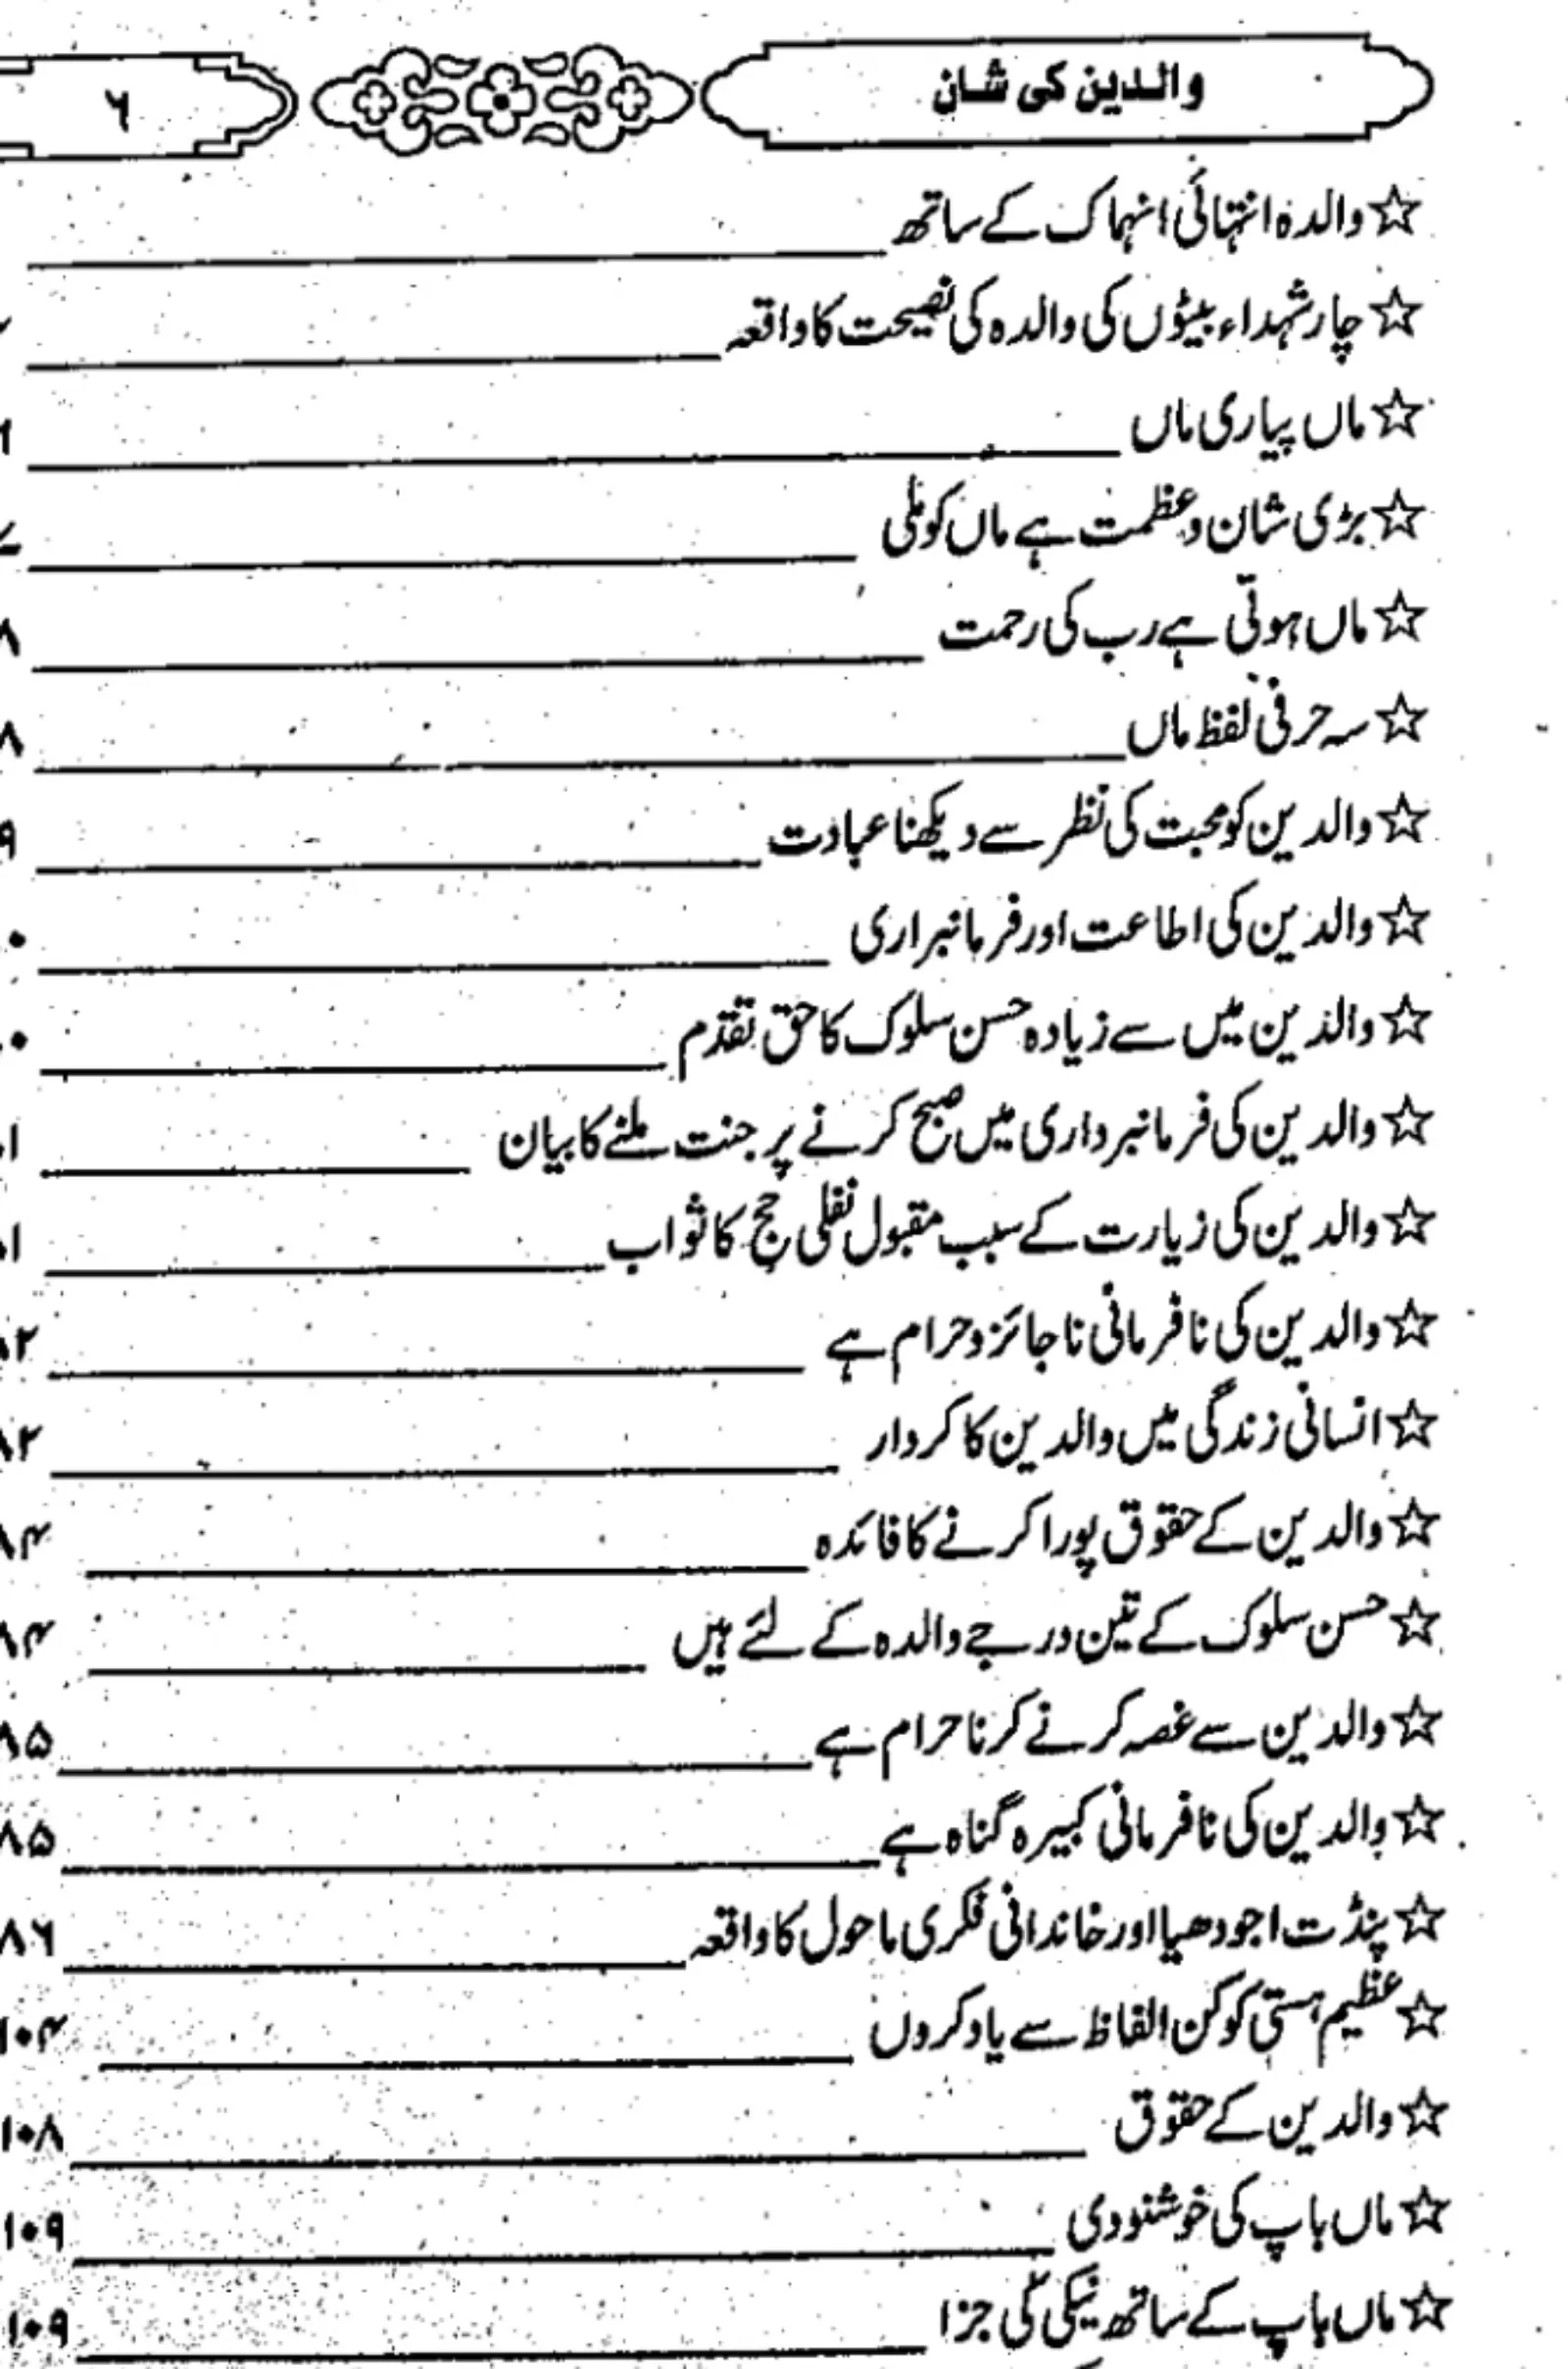 والدین کی شان ۶
☆ والدہ انتہائی انہماک کے ساتھ
☆ چار شہداء بیٹوں کی والدہ کی نصیحت کا واقعہ
☆ ماں پیاری ماں
☆ بڑی شان و عظمت ہے ماں کو ملی
☆ ماں ہوتی ہے رب کی رحمت
☆ سہ حرفی لفظ ماں
☆ والدین کو محبت کی نظر سے دیکھنا عبادت
☆ والدین کی اطاعت اور فرمانبراری
☆ والدین میں سے زیادہ حسن سلوک کا حق تقدم
☆ والدین کی فرمانبرداری میں صبح کرنے پر جنت ملنے کا بیان
☆ والدین کی زیارت کے سبب مقبول نفلی حج کا ثواب
☆ والدین کی نافرمانی ناجائز وحرام ہے ۸۲
☆ انسانی زندگی میں والدین کا کردار ۸۲
☆ والدین کے حقوق پورا کرنے کا فائدہ ۸۴
☆ حسن سلوک کے تین درجے والدہ کے لئے ہیں ۸۴
☆ والدین سے غصہ کرنے کرنا حرام ہے ۸۵
☆ والدین کی نافرمانی کبیرہ گناہ ہے ۸۵
☆ پنڈت اجودھیا اور خاندانی فکری ماحول کا واقعہ ۸۶
☆ عظیم ہستی کو کن الفاظ سے یاد کروں ۱۰۴
☆ والدین کے حقوق ۱۰۸
☆ ماں باپ کی خوشنودی ۱۰۹
☆ ماں باپ کے ساتھ نیکی کی جزا ۱۰۹